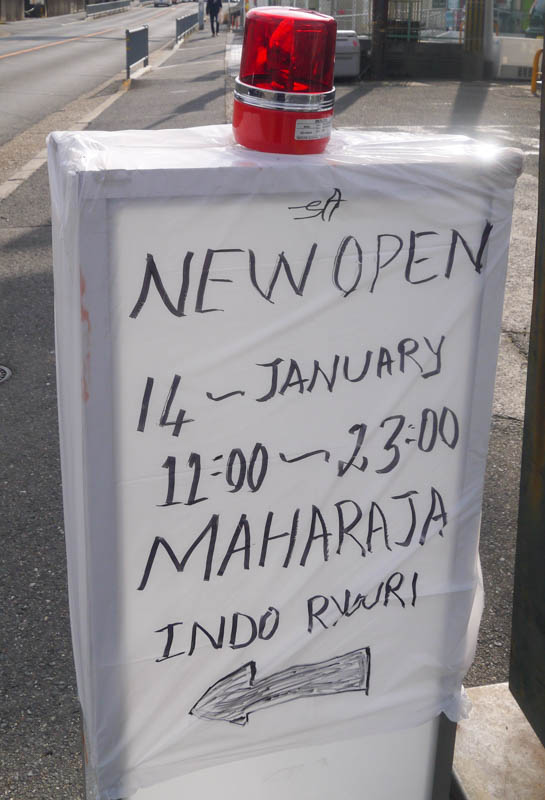 NEW OPEN
14 ~ JANUARY
11:00 ~ 23:00
MAHARAJA
INDO RYURI